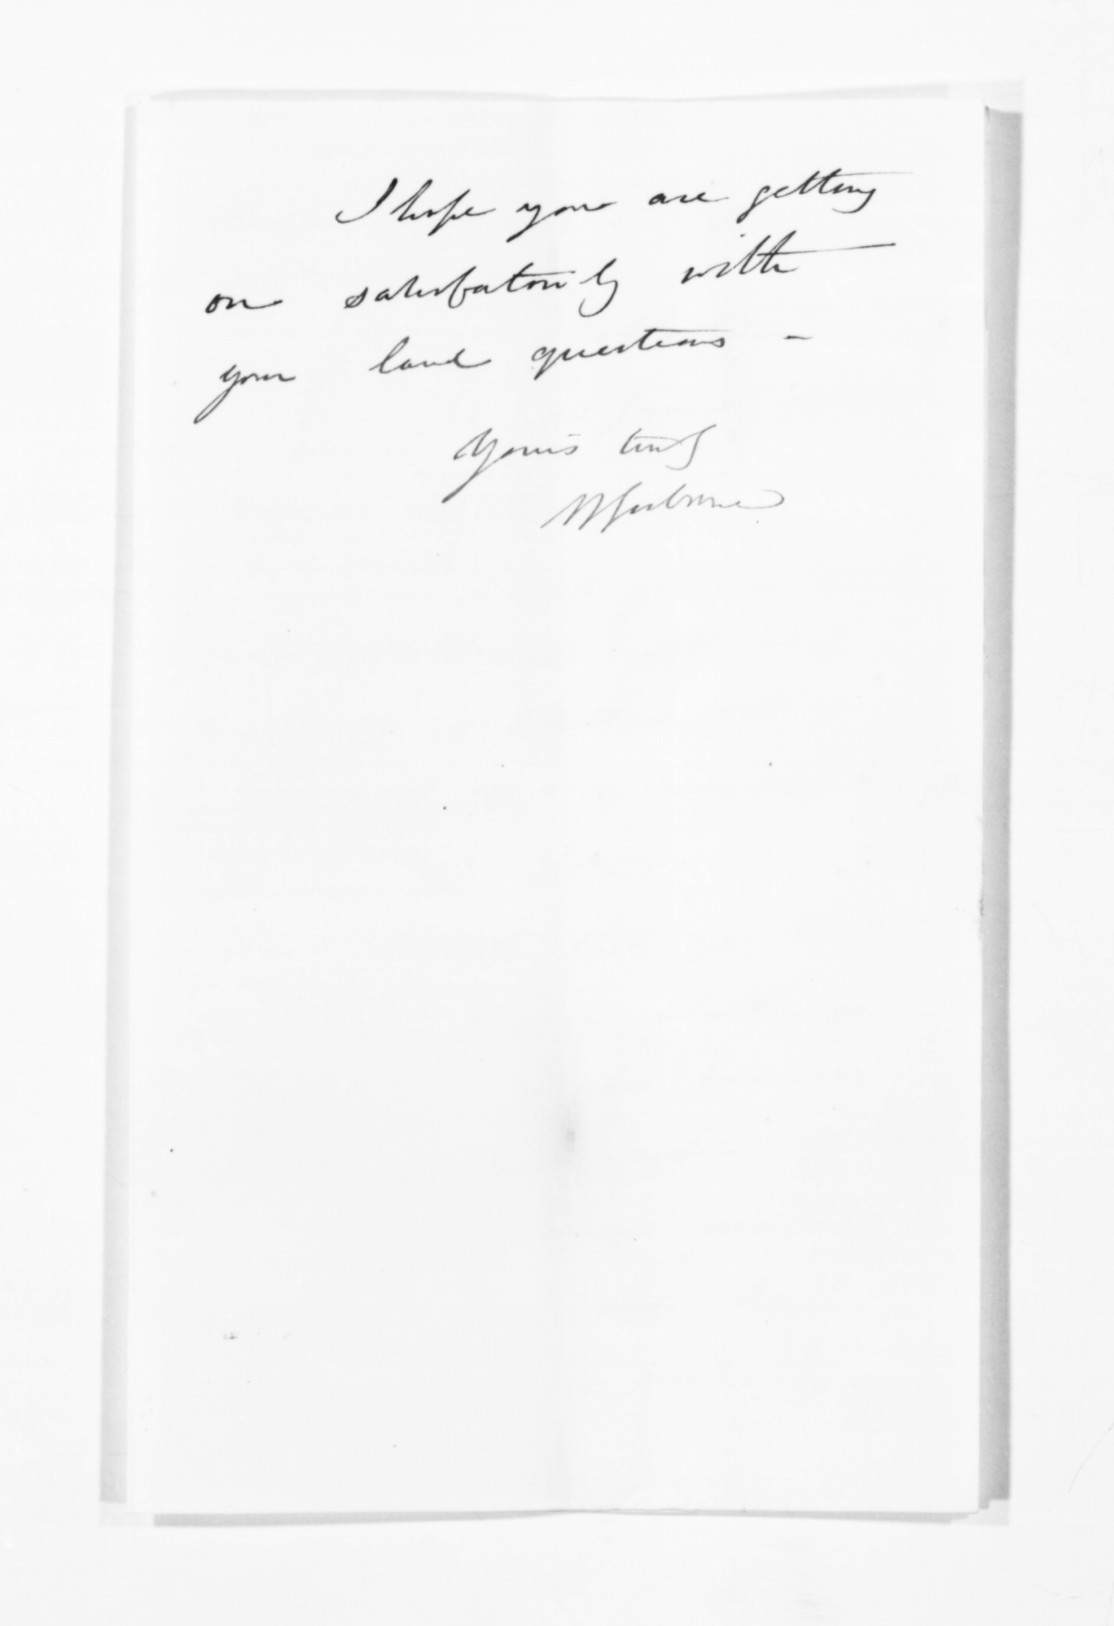 I hope you are getting
on satisfatorily with
your land questions -
Yours truly
W Gisborne